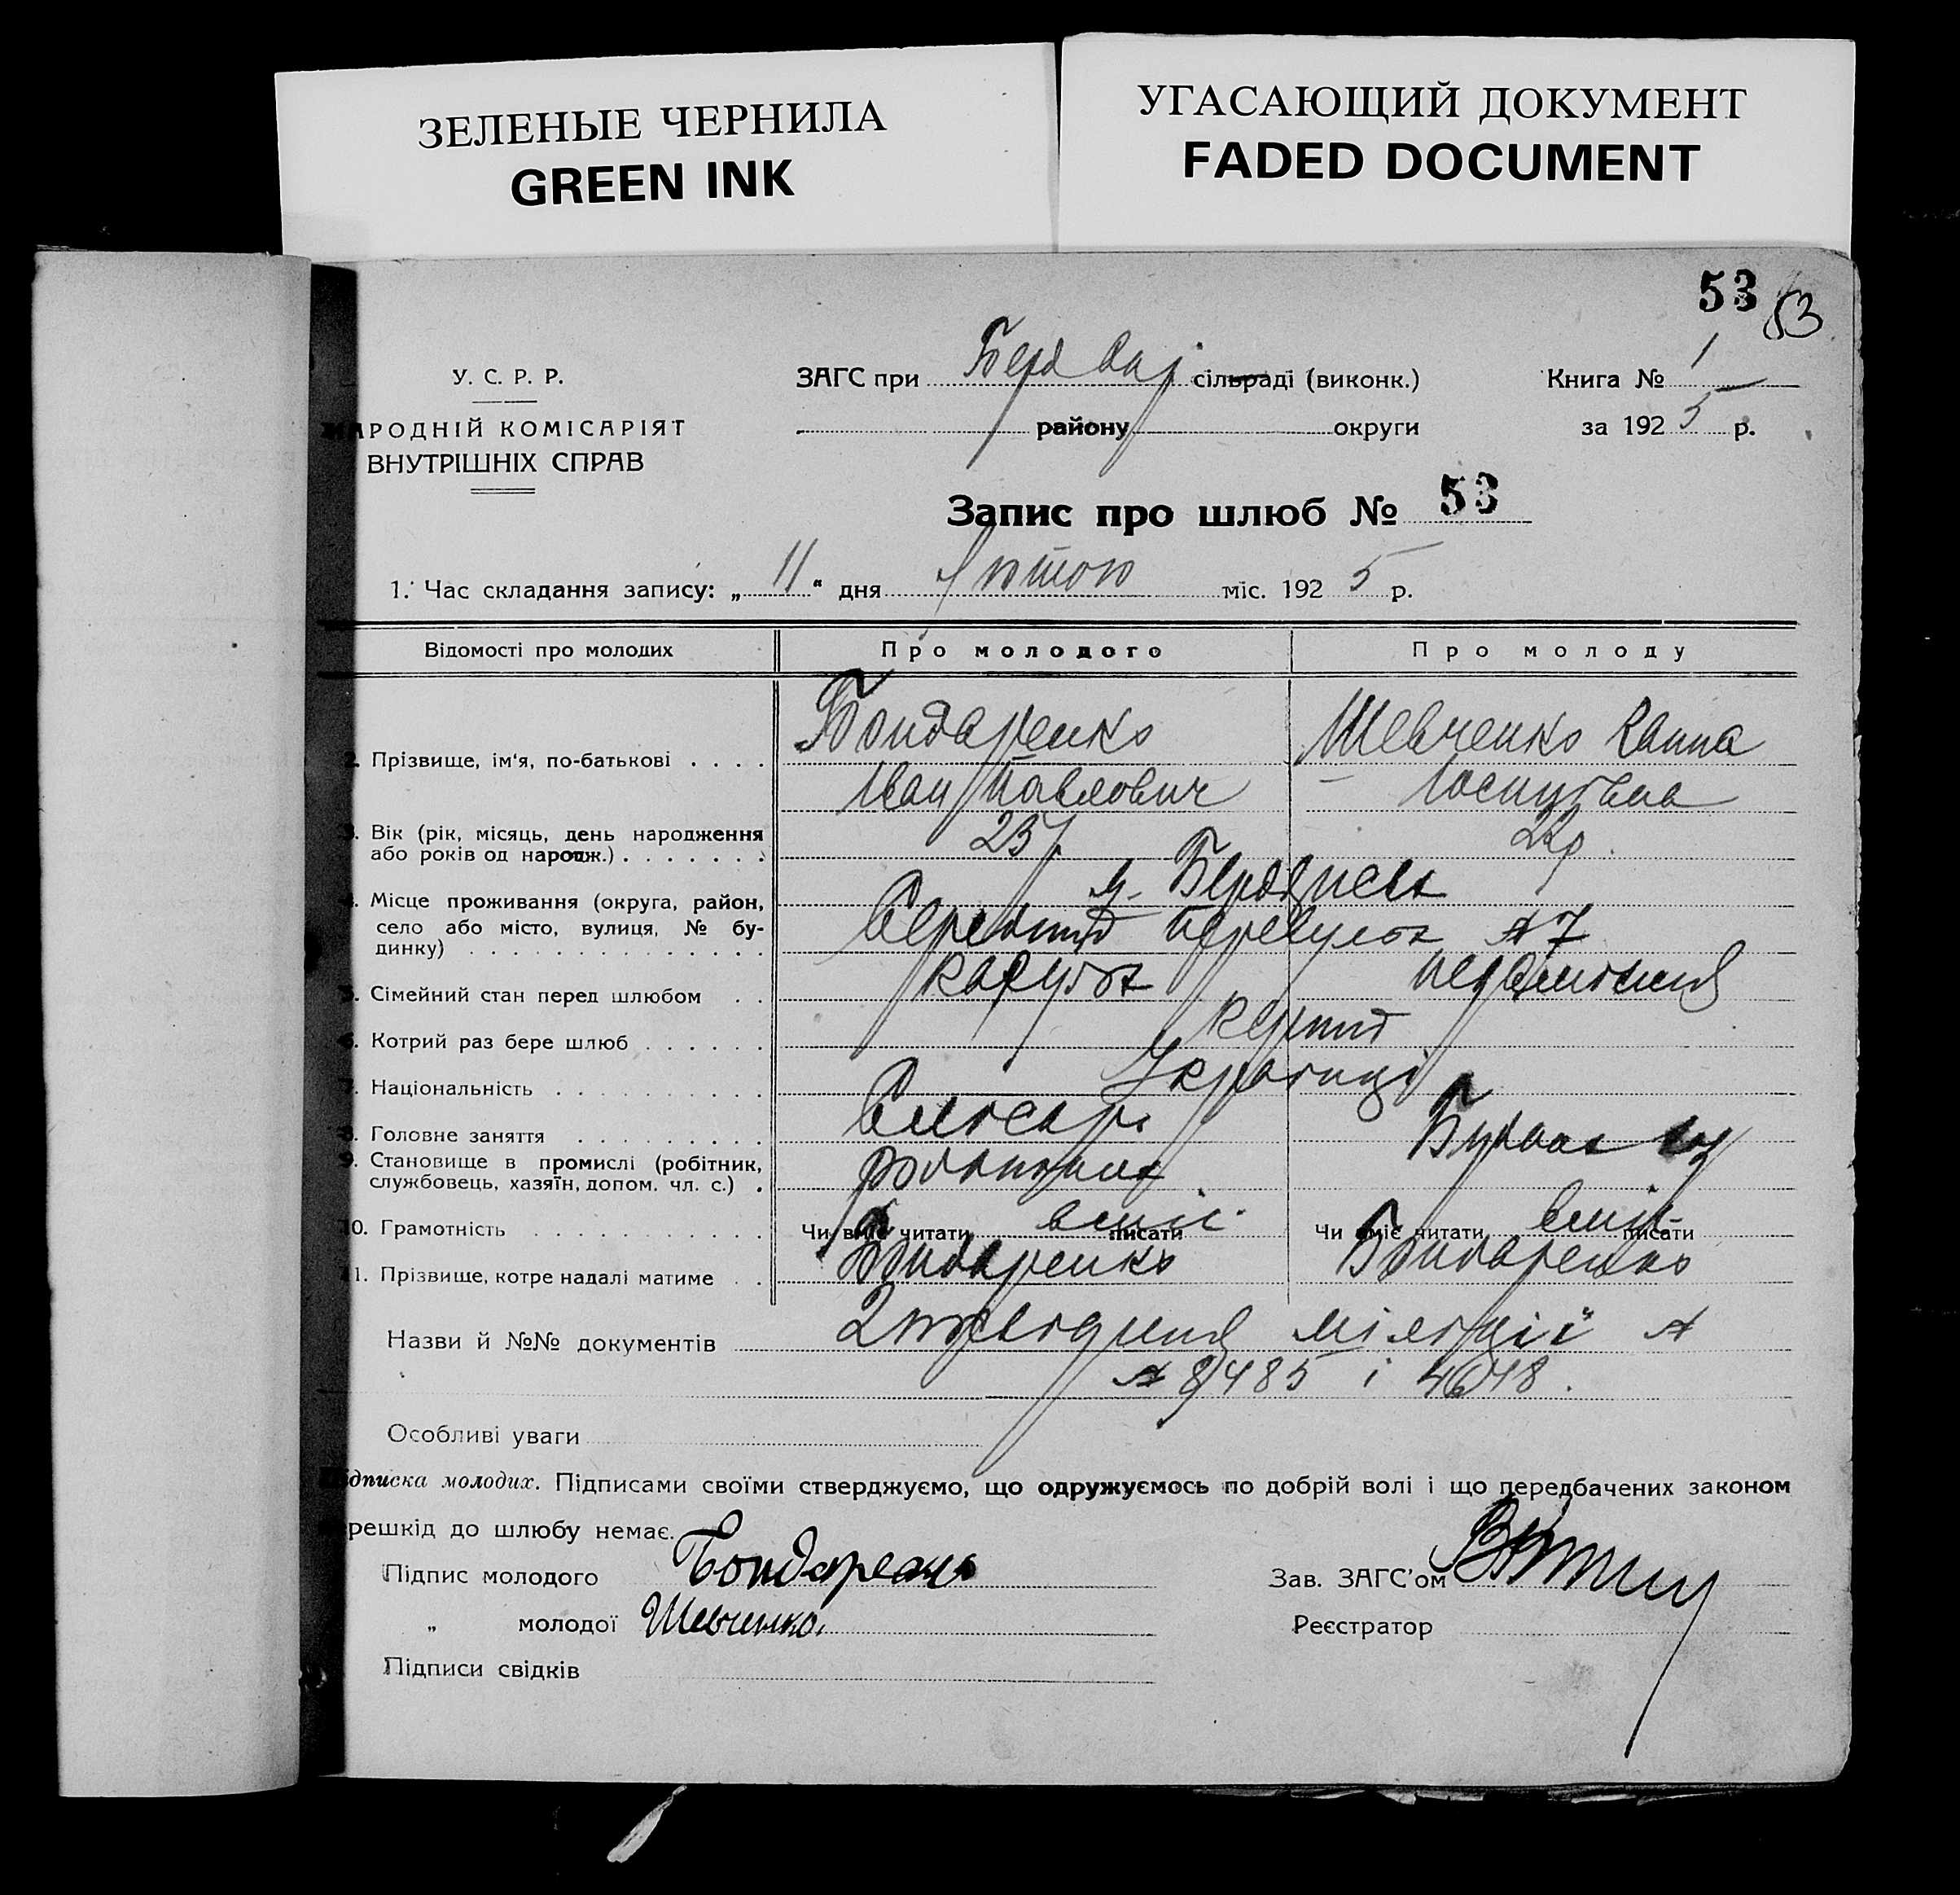 ЗЕЛЕНЫЕ ЧЕРНИЛА
GREEN INK
УГАСАЮЩИЙ ДОКУМЕНТ
FADED DOCUMENT
53 53
У. С. Р. Р.
НАРОДНІЙ КОМІСАРІЯТ
ВНУТРІШНІХ СПРАВ
ЗАГС при сільраді (виконк.)
району округи
Книга № 1
за 1925 р.
Запис про шлюб № 53
1. Час складання запису: „11“ дня Лютого міс. 1925 р.
Відомості про молодих Про молодого Про молоду
2. Прізвище, ім'я, по-батькові . . . . Бондаренко Шевченко Ганна
Іван Павлович
3. Вік (рік, місяць, день народження
або років од народж.) . . . . . . . 23 22р.
4. Місце проживання (округа, район, м. Бердичев
село або місто, вулиця, № бу- перевулок № 7
динку) . . . . . . . . . . . . . .
5. Сімейний стан перед шлюбом . . парубок
6. Котрий раз бере шлюб . . . . . .
7. Національність . . . . . . . . . . Українці
8. Головне заняття . . . . . . . . . Слюсарь
9. Становище в промислі (робітник,
службовець, хазяїн, допом. чл. с.) . робітник
10. Грамотність . . . . . . . . . . . Чи вміє читати вміє писати Чи вміє читати вміє писати
11. Прізвище, котре надалі матиме . . Бондаренко Бондаренко
Назви й №№ документів 2 посвідчення міліції №
№ 8485 і
Особливі уваги
Підписка молодих. Підписами своїми стверджуємо, що одружуємось по добрій волі і що передбачених законом
перешкід до шлюбу немає.
Підпис молодого Бондаренко
Зав. ЗАГС'ом
„ молодої Шевченко.
Реєстратор
Підписи свідків